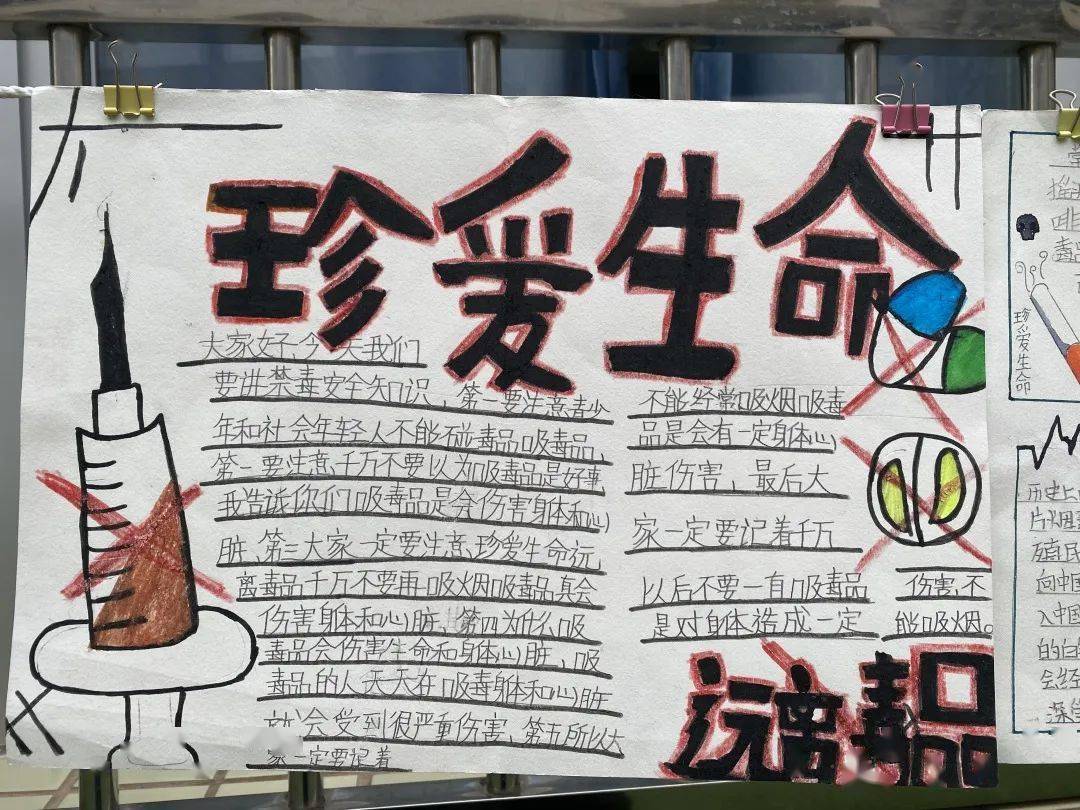 珍爱生命
大家好今天我们
要讲禁毒安全知识，第一要注意青少
年和社会年轻人不能碰毒品吸毒品，
第一要注意，千万不要以为吸毒品是好事
我告诉你们吸毒品是会伤害身体和心
脏，第三大家一定要注意珍爱生命远
离毒品千万不要再吸烟吸毒品真会
伤害身体和心脏，第四为什么吸
毒品会伤害生命和身体心脏，吸
毒品的人天天在吸毒身体和心脏
就会受到很严重伤害，第五所以大
家一定要记着
不能经常吸烟吸毒
品是会有一定身体心
脏伤害，最后大
家一定要记着千万
以后不要一直吸毒品
是对身体造成一定
伤害，不
能吸烟。
远离毒品
珍爱生命
历史上
片烟
殖民
向中国
入中国
的白
会经